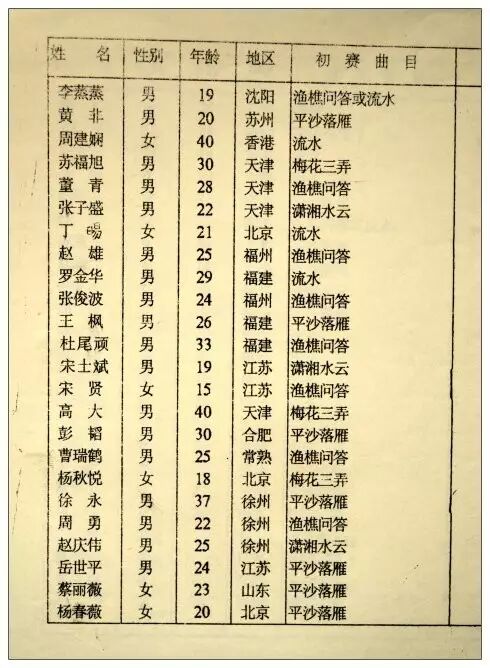 姓 名 性别 年龄 地区 初赛曲目
李燕燕 男 19 沈阳 渔樵问答或流水
黄非 男 20 苏州 平沙落雁
周建娴 女 40 香港 流水
苏福旭 男 30 天津 梅花三弄
董青 男 28 天津 渔樵问答
张子盛 男 22 天津 潇湘水云
丁暘 女 21 北京 流水
赵雄 男 25 福州 渔樵问答
罗金华 男 29 福建 流水
张俊波 男 24 福州 渔樵问答
王枫 男 26 福建 平沙落雁
杜尾顽 男 33 福建 渔樵问答
宋士斌 男 19 江苏 潇湘水云
宋贤 女 15 江苏 渔樵问答
高大 男 40 天津 梅花三弄
彭韬 男 30 合肥 平沙落雁
曹瑞鹤 男 25 常熟 渔樵问答
杨秋悦 女 18 北京 梅花三弄
徐永 男 37 徐州 平沙落雁
周勇 男 22 徐州 渔樵问答
赵庆伟 男 25 徐州 潇湘水云
岳世平 男 24 江苏 平沙落雁
蔡丽薇 女 23 山东 平沙落雁
杨春薇 女 20 北京 平沙落雁